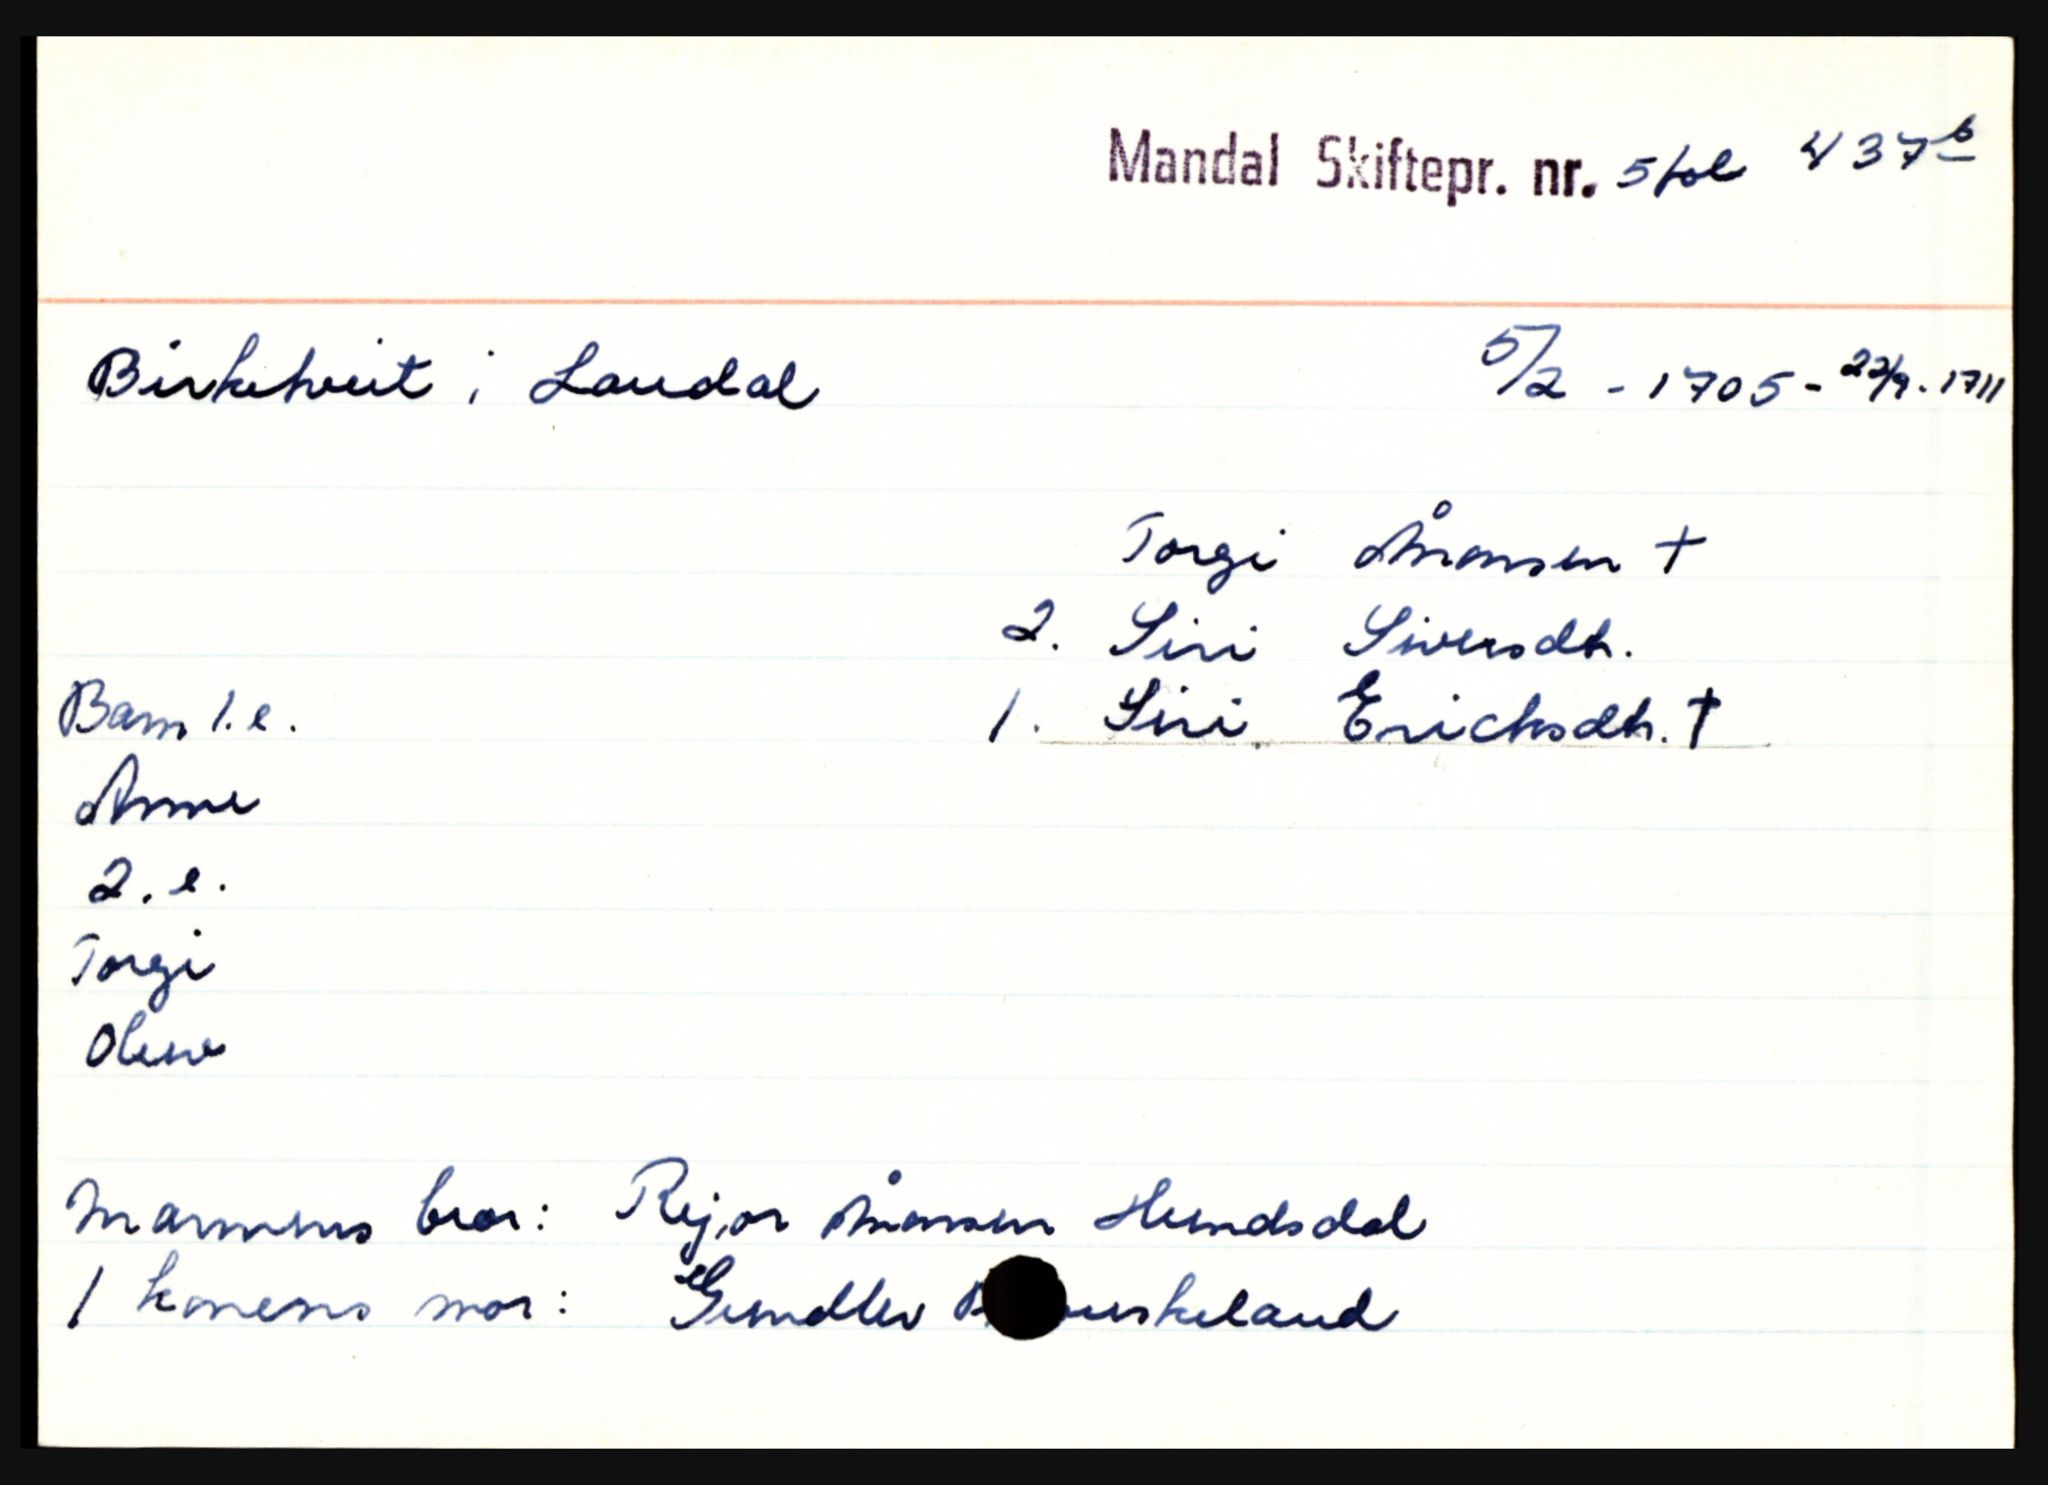 Mandal Skiftepr. nr. 5 fol 437 b
Birkehveit i Laudal 5/2 - 1705 - 22/9 - 1711
Torgi Åmonsen †
2. Siri Siversdtr.
Barn 1. e. 1. Siri Ericksdtr. †
Anne
2. e.
Torgi
Olene
Mannens bror: Rejor Åmonsen Hundsdal
1 konens mor: Gundlev